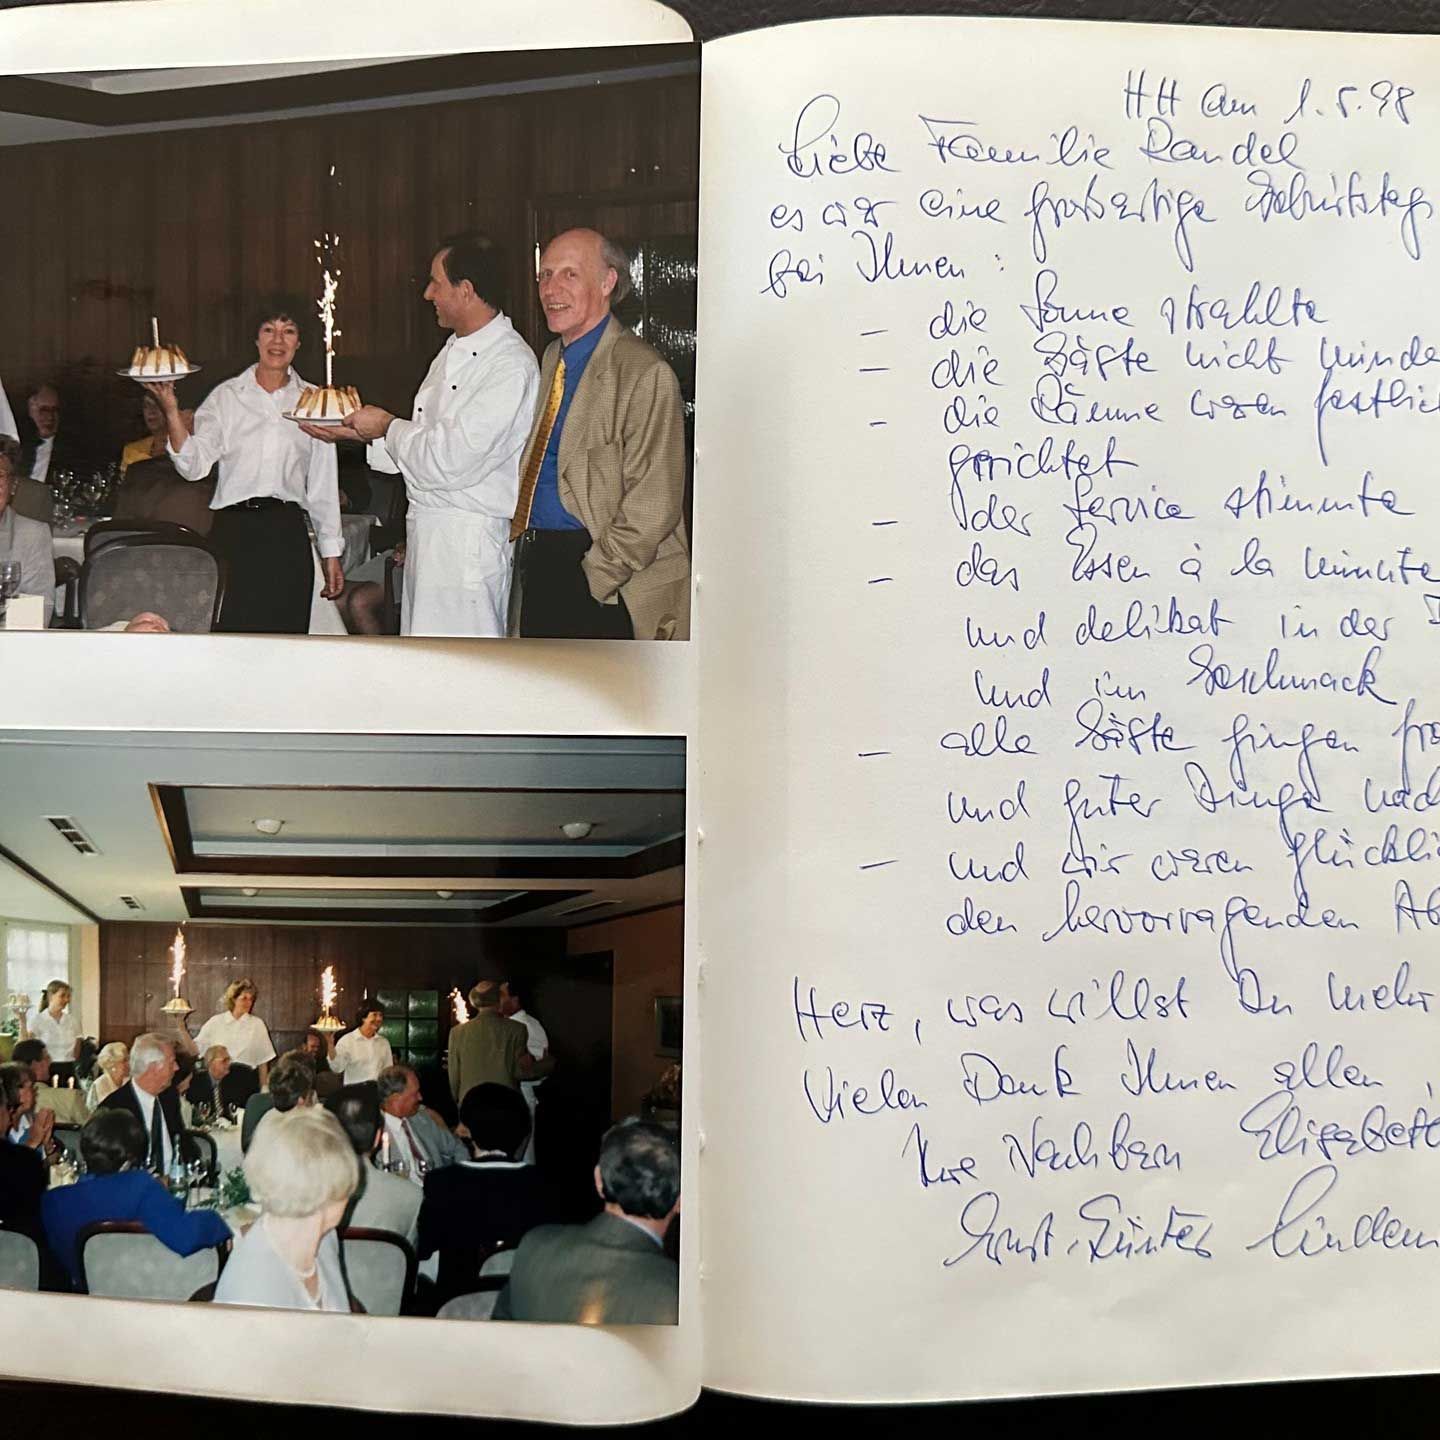 HH am 1.5.98
Liebe Familie Randel
es war eine großartige Geburtstags
bei Ihnen:
– die Sonne strahlte
– die Gäste nicht minde
– die Räume waren festlic
gerichtet
– der Service stimmte
– das Essen à la minute
und delikat in der
und im Geschmack
– alle Gäste gingen fro
und guter Dinge nac
– und wir waren glückli
den hervorragenden Ab
Herz, was willst Du mehr
Vielen Dank Ihnen allen,
Ihre Nachbarn Elisabet
Ernst-Günter Lindem